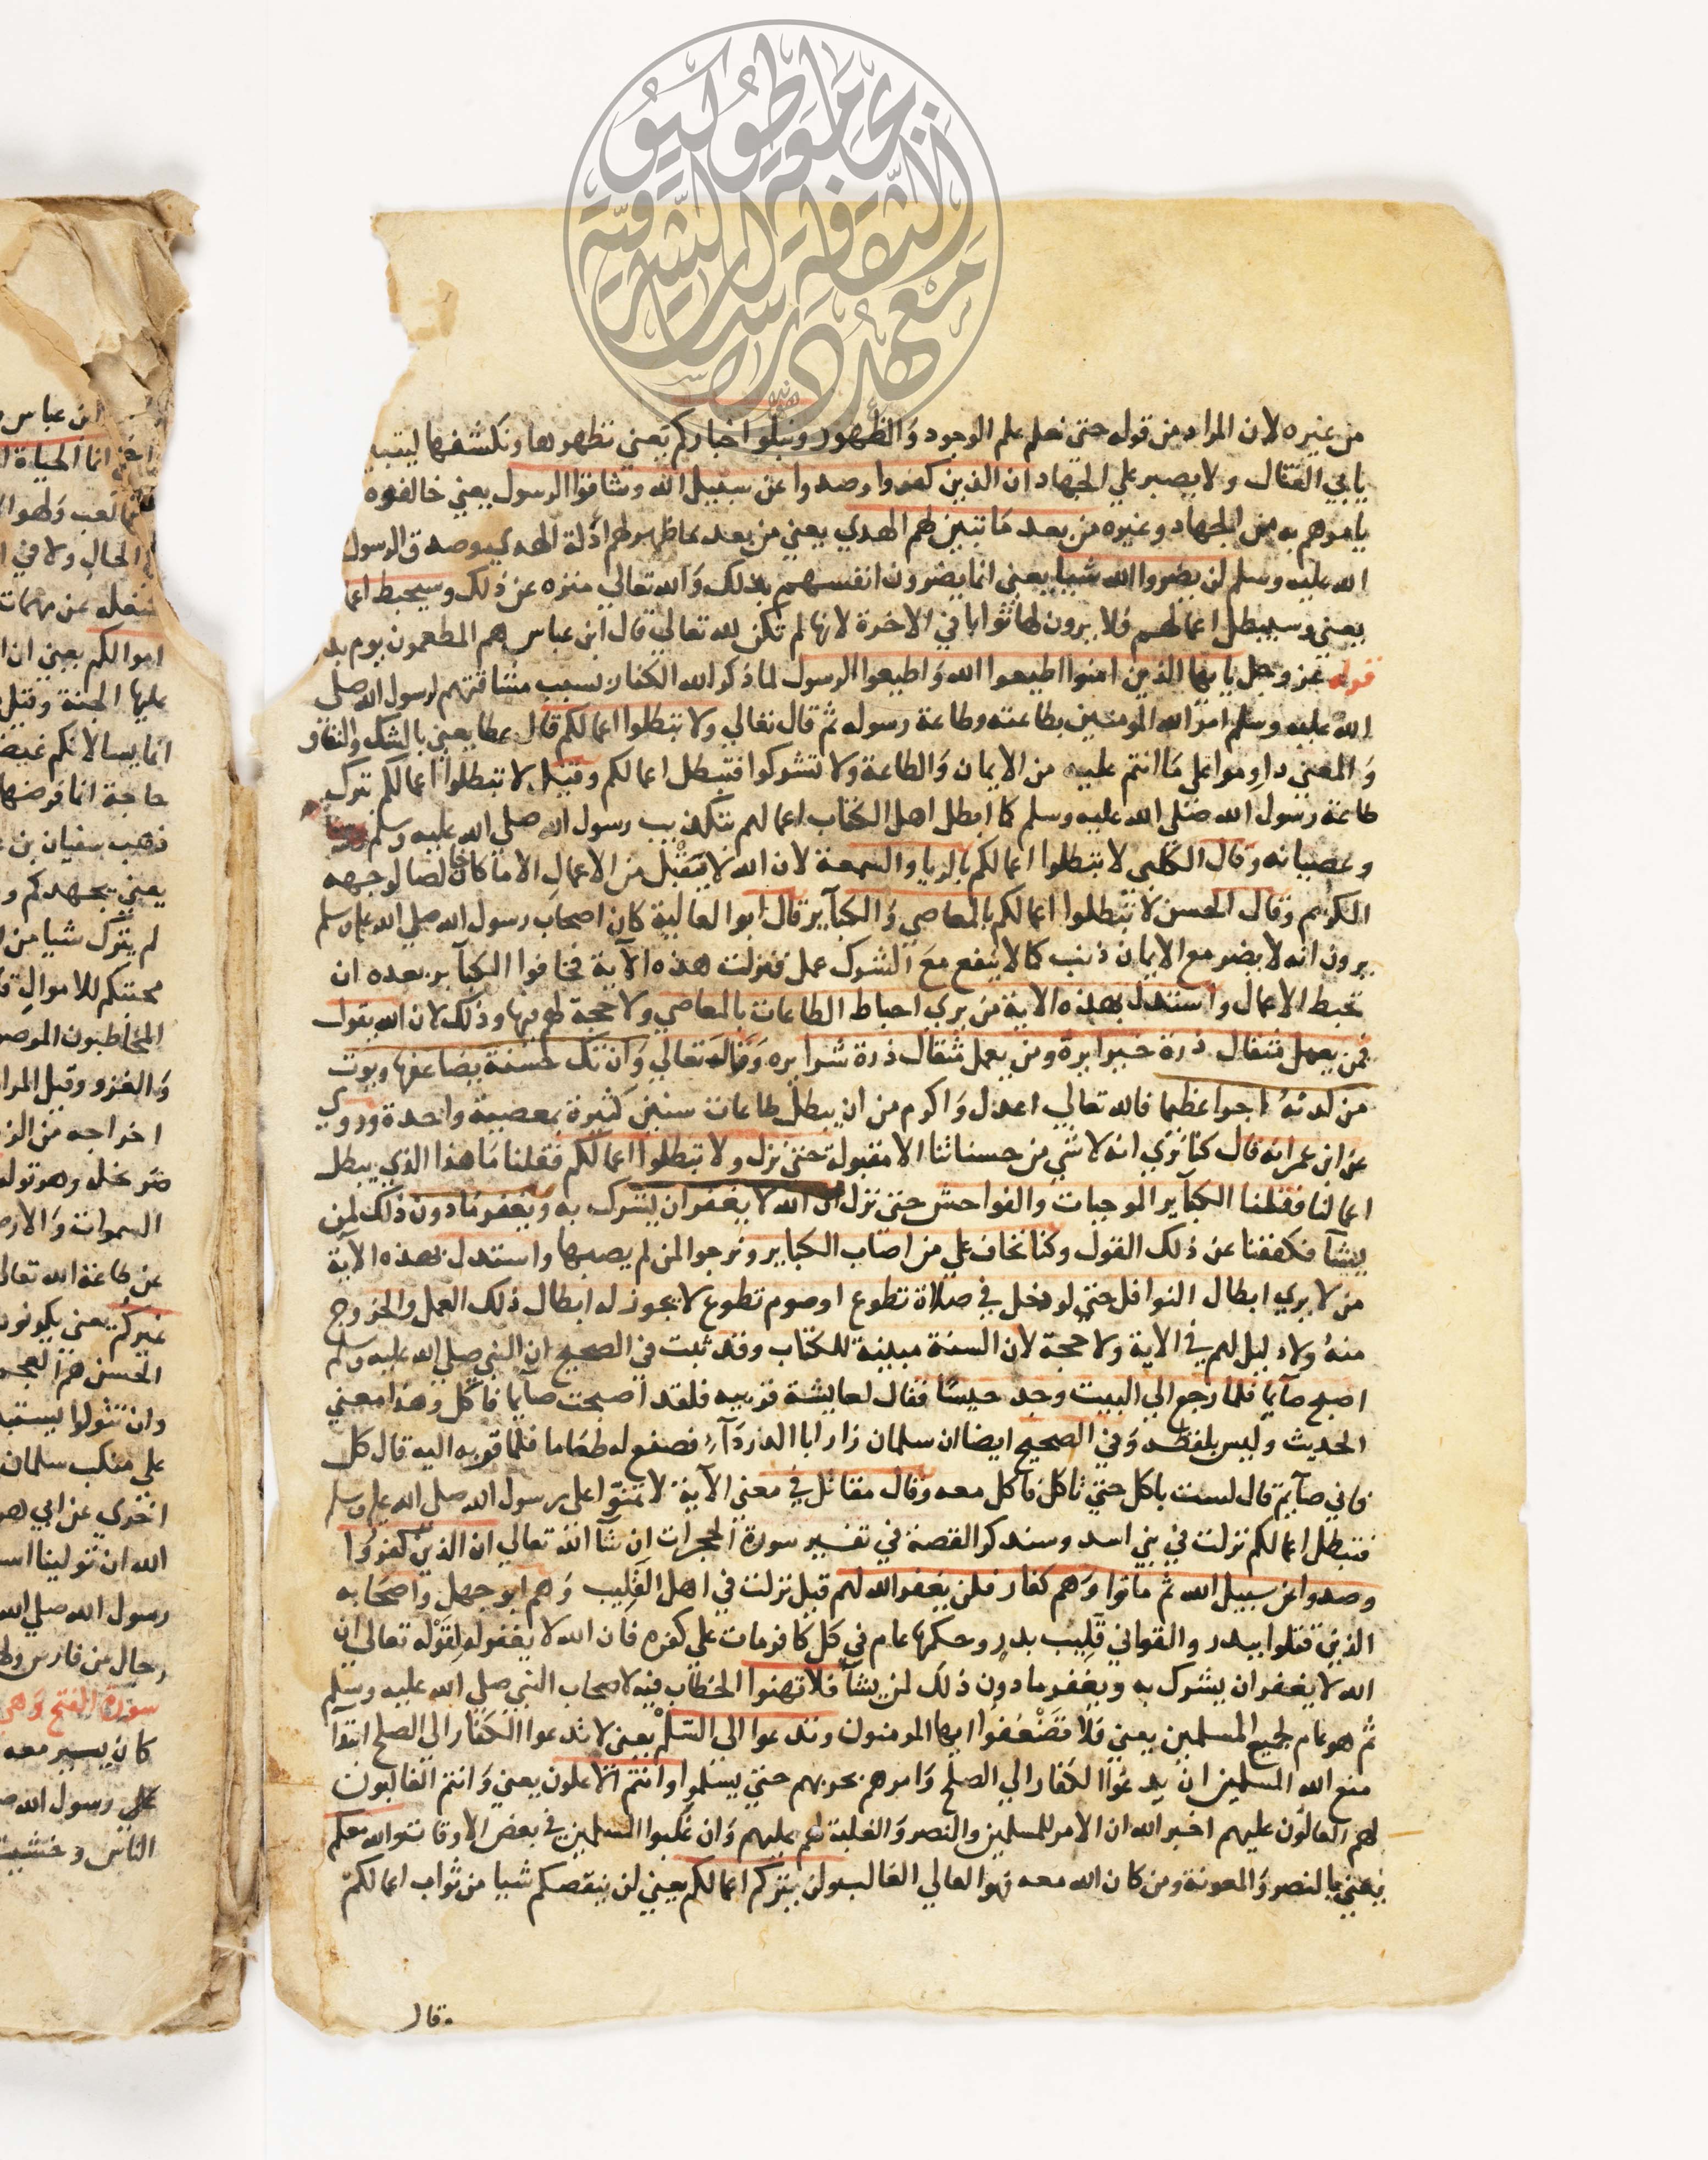 من غيره لان المراد من قوله حتى نعلم علم الوجود والظهور ونبلوا اخباركم يعني نظهرها ونكشفها ليتبين
يابي القتال ولا يصبر علي الجهاد ان الذين كفروا وصدوا عن سبيل الله وشاقوا الرسول يعني خالفوه
يامرهم به من الجهاد وغيره من بعد ما تبين لهم الهدي يعني من بعد ما ظهر لهم ادلة الهدي وصدق الرسول
الله عليه وسلم لن يضروا الله شيا يعني انما يضرون انفسهم بذلك والله تعالي منزه عن ذلك وسيحبط اعما
يعني وسيبطل اعمالهم فلا يرون لها ثوابا في الاخرة لانها لم تكن لله تعالي قال ابن عباس هم المطعمون يوم بد
قوله عز وجل يا يها الذين امنوا اطيعوا الله واطيعوا الرسول لما ذكر الله الكفار بسبب مشاقتهم لرسول الله صلي
الله عليه وسلم امر الله المومنين بطاعته وطاعة رسوله ثم قال تعالي ولا تبطلوا اعمالكم قال عطا يعني بالشك والنفاق
والمعني داوموا علي ما انتم عليه من الايمان والطاعة ولا تشركوا فتبطل اعمالكم وقيل لا تبطلوا اعمالكم بترك
طاعة رسول الله صلي الله عليه وسلم كما ابطل اهل الكتاب اعمالهم بتكذيب رسول الله صلي الله عليه وسلم
وعصيانه وقال الكلبي لا تبطلوا اعمالكم بالريا والسمعة لان الله لا يتقبل من الاعمال الا ما كان خالصا لوجهه
الكريم وقال الحسن لا تبطلوا اعمالكم بالمعاصي والكبآير قال ابو العالية كان اصحاب رسول الله صلي الله عليه وسلم
يرون انه لا يضر مع الايمان ذنب كما لا ينفع مع الشرك عمل فنزلت هذه الآية فخافوا الكبآير بعده ان
تحبط الاعمال واستدل بهذه الاية من يري احباط الطاعات بالمعاصي ولا حجة لهم فيها وذلك لان الله يقول
فمن يعمل مثقال ذرة خيرا يره ومن يعمل مثقال ذرة شرا يره وقال تعالي وان تك حسنة يضاعفها ويوت
من لدنه اجرا عظيما فالله تعالي اعدل واكرم من ان يبطل طاعات سنين كثيرة بمعصية واحدة وروي
عن ابن عمر انه قال كنا نري انه لا شي من حسناتنا الا مقبولة حتي نزل ولا تبطلوا اعمالكم فقلنا ما هذا الذي يبطل
اعمالنا فقلنا الكبآير الموجبات والفواحش حتي نزل ان الله لا يغفر ان يشرك به ويغفر ما دون ذلك لمن
يشآ فكففنا عن ذلك القول وكنا نخاف علي من اصاب الكباير ونرجوا لمن لم يصبها واستدل بهذه الآية
من لا يري ابطال النوافل حتي لو دخل في صلاة تطوع او صوم تطوع لا يجوز له ابطال ذلك العمل والخروج
منه ولا دليل لهم في الاية ولا حجة لان السنة مبينة للكتاب وقد ثبت في الصحيح ان النبي صلي الله عليه وسلم
اصبح صآيما فلما رجع الي البيت وجد حيسا فقال لعايشة قربيه فلقد اصبحت صآيما فاكل وهذا معني
الحديث وليس بلفظه وفي الصحيح ايضا ان سلمان زار ابا الدردآء فصنع له طعاما فلما قربه اليه قال كل
فاني صآيم قال لست باكل حتي تاكل فاكل معه وقال مقاتل في معني الآية لا تمنوا علي رسول الله صلي الله عليه وسلم
فتبطل اعمالكم نزلت في بني اسد وسنذكر القصة في تفسير سورة الحجرات ان شآ الله تعالي ان الذين كفروا
وصدوا عن سبيل الله ثم ماتوا وهم كفار فلن يغفر الله لهم قيل نزلت في اهل القليب وهم ابو جهل واصحابه
الذين قتلوا ببدر والقوا في قليب بدر وحكمها عام في كل كافر مات علي كفره فان الله لا يغفر له لقوله تعالي ان
الله لا يغفر ان يشرك به ويغفر ما دون ذلك لمن يشآ فلا تهنوا الخطاب فيه لاصحاب النبي صلي الله عليه وسلم
ثم هو عام لجميع المسلمين يعني فلا تضعفوا ايها المومنون وتدعوا الي السلم يعني لا تدعوا الكفار الي الصلح ابتدآ
منع الله المسلمين ان يدعوا الكفار الي الصلح وامرهم بحربهم حتي يسلموا وانتم الاعلون يعني وانتم الغالبون
لهم العالون عليهم اخبر الله ان الامر للمسلمين والنصر والغلبة لهم عليهم وان غلبوا المسلمين في بعض الاوقات والله معكم
يعني بالنصر والمعونة ومن كان الله معه فهو العالي الغالب ولن يتركم اعمالكم يعني لن ينقصكم شيا من ثواب اعمالكم
قال
ابن عباس
انما الحياة
لعب ولهو
الحال ولا في
عن مهمات
اموالكم يعني ان
عليها الجنة وقيل
انما يسالانكم غيض
حاجة انما فرضها
ذهب سفيان بن
يعني يجهدكم و
لم يترك شيا من
محبتكم للاموال
المخاطبون الموصو
والغزو وقيل المرا
اخراجه من الز
ضر بخله وهو قوله
السموات والارض
عن طاعة الله تعالي
غيركم يعني يكونون
الحسن هم العجم
وان تتولوا يستبد
علي منكب سلمان
اخري عن ابي هر
الله ان تولينا است
رسول الله صلي الله
رجال من فارس
سورة الفتح وهي
كان يسير معه
علي رسول الله ص
الناس وخشيت
جامعة طوكيو
معهد دراسات الثقافة الشرقية